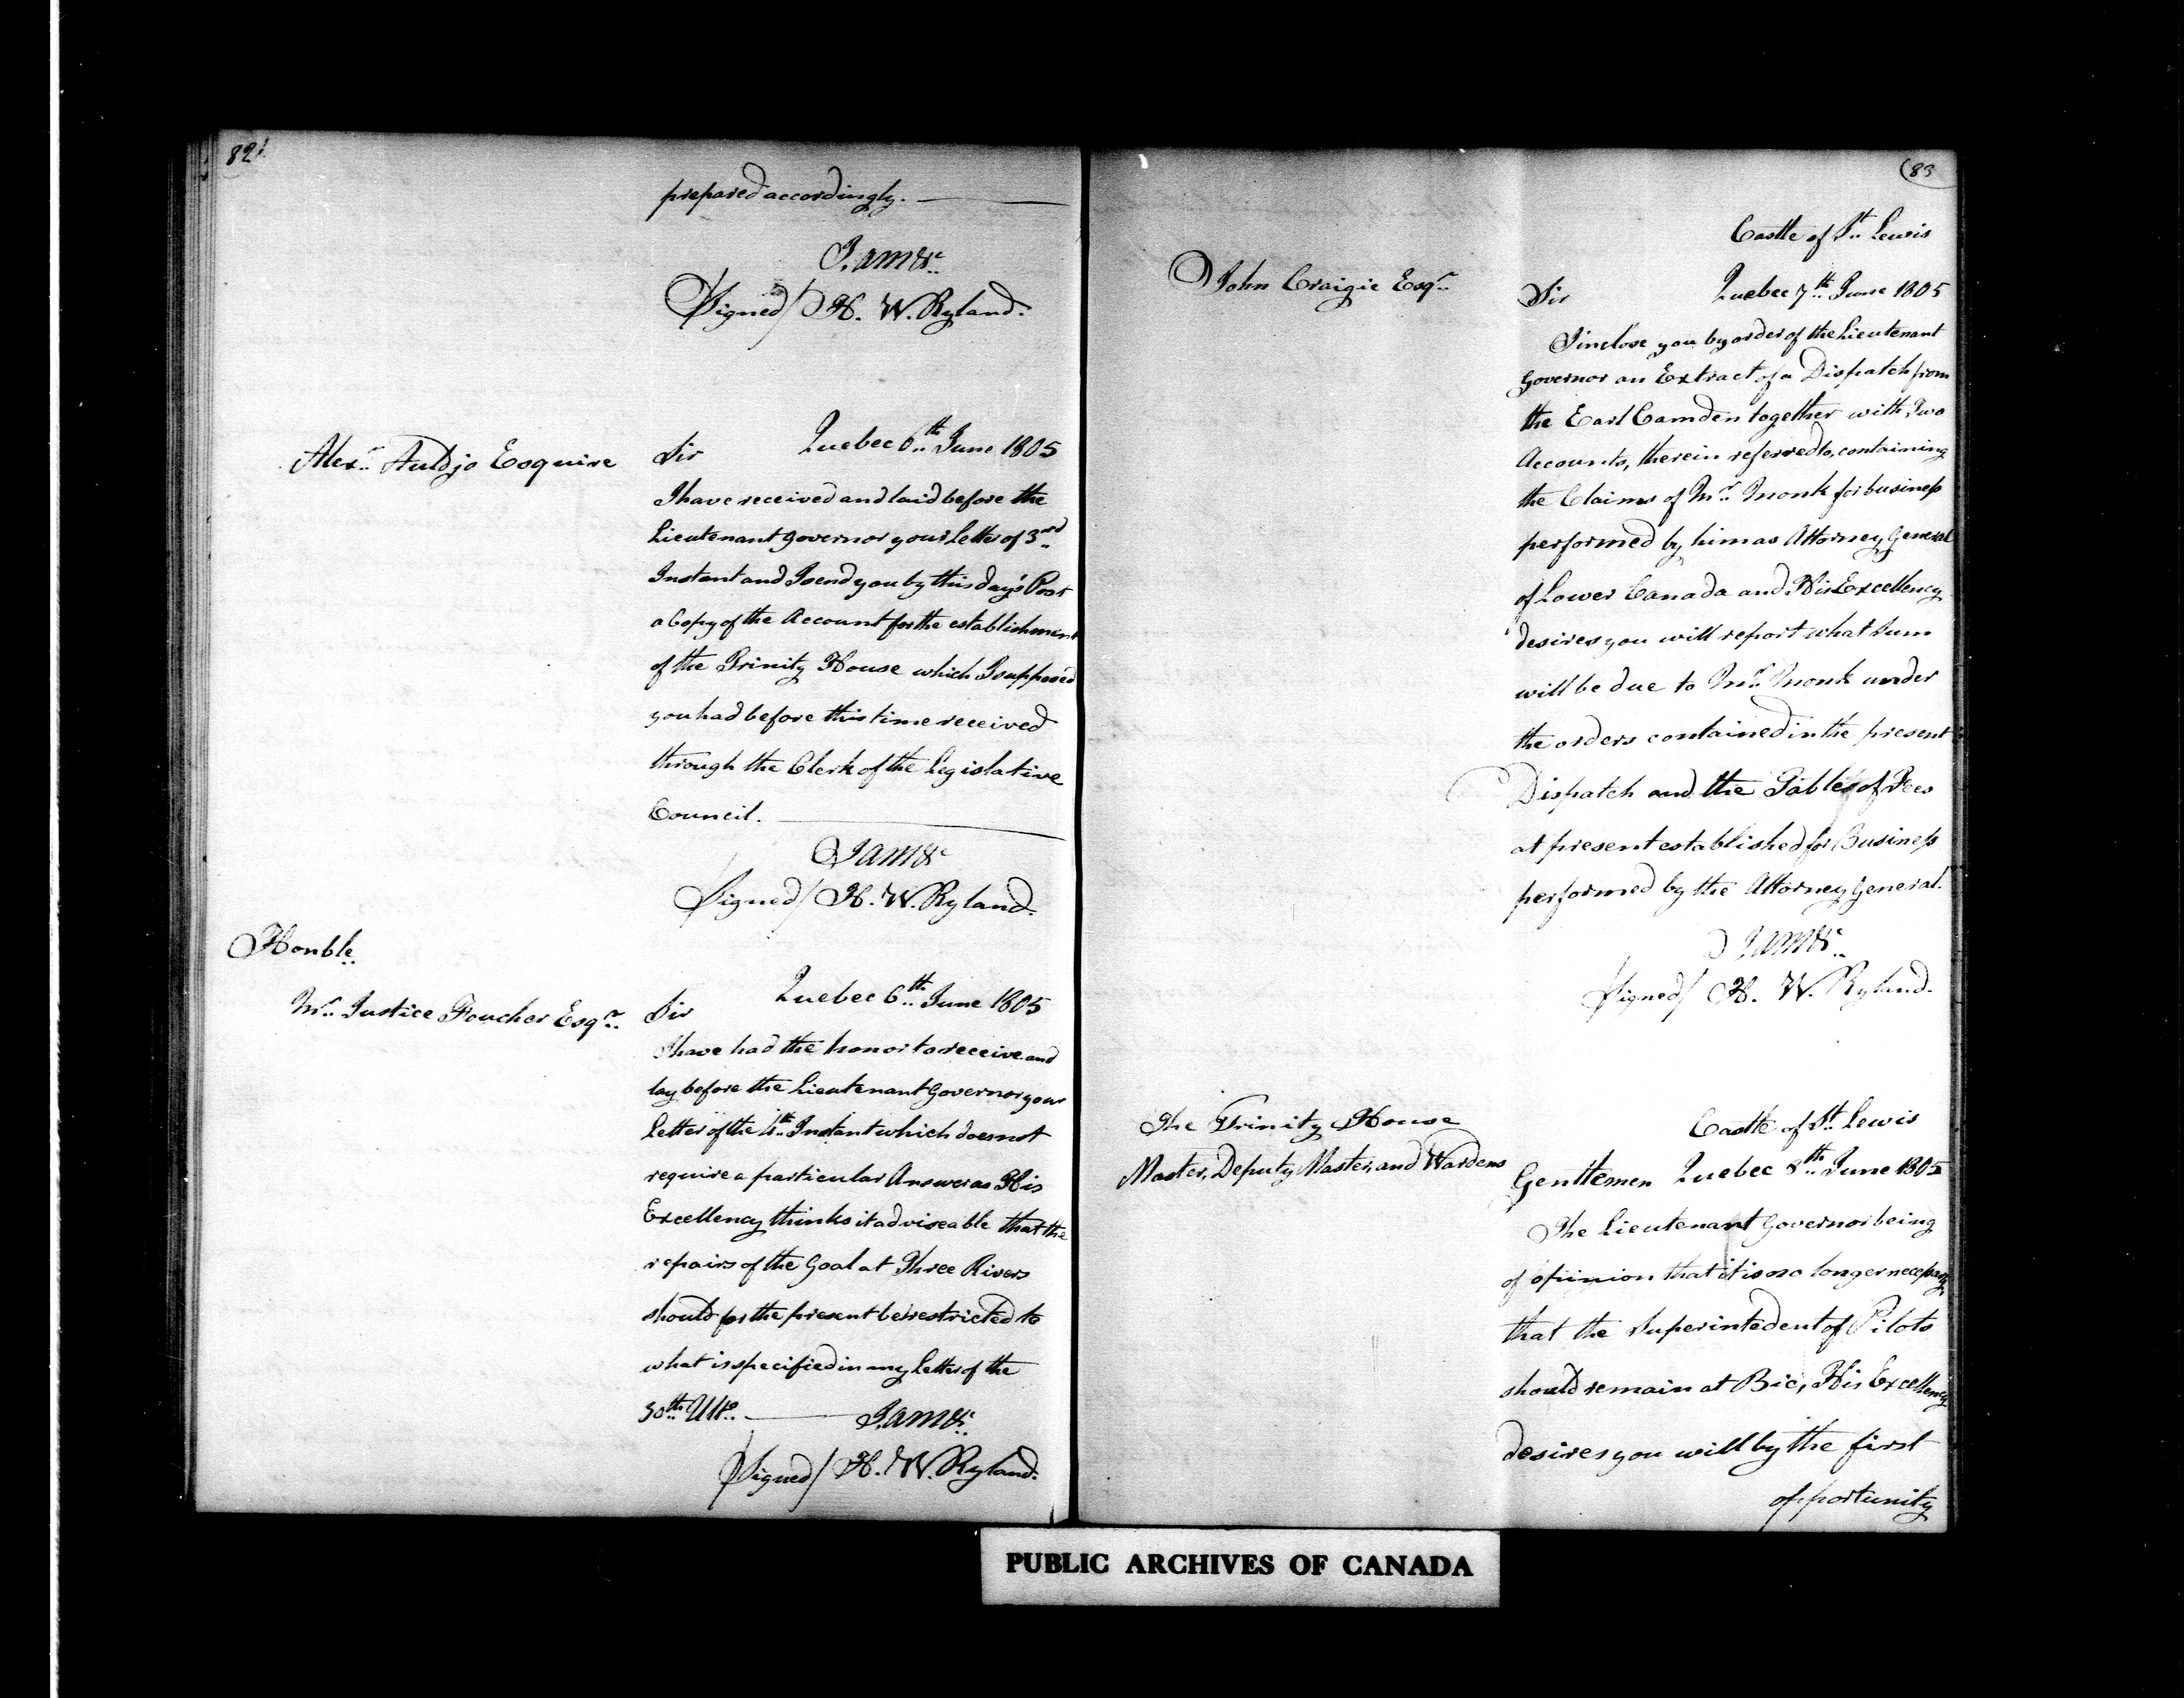 82
prepared accordingly.
I am &c
Signed/ H. W. Ryland.
Alexr Auldjo Esquire
Sir Quebec 6th June 1805
I have received and laid before the
Lieutenant Governor your Letter of 3rd
Instant and I send you by this day's Post
a Copy of the Account for the establishment
of the Trinity House which I supposed
you had before this time received
through the Clerk of the Legislative
Council.
I am &c
Signed/ H. W. Ryland.
Honble
Mr Justice Foucher Esqr
Sir Quebec 6th June 1805
I have had the honor to receive and
lay before the Lieutenant Governor your
Letter of the 4th Instant which does not
require a particular Answer as His
Excellency thinks it adviseable that the
repairs of the Goal at Three Rivers
should for the present be restricted to
what is specified in my Letter of the
30th Ulto. I am &c
Signed/ H. W. Ryland.
83
Castle of St Lewis
John Craigie Esqr
Sir Quebec 7th June 1805
I inclose you by order of the Lieutenant
Governor an Extract of a Dispatch from
the Earl Camden together with Two
Accounts, therein referred to, containing
the Claims of Mr Monk for business
performed by him as Attorney General
of Lower Canada and His Excellency
desires you will report what Sum
will be due to Mr Monk under
the orders contained in the present
Dispatch and the Table of Fees
at present established for Business
performed by the Attorney General.
I am &c
Signed/ H. W. Ryland.
The Trinity House
Master, Deputy Master, and Wardens
Castle of St Lewis
Gentlemen Quebec 8th June 1805
The Lieutenant Governor being
of opinion that it is no longer necessary
that the Superintedent of Pilots
should remain at Bic, His Excellency
desires you will by the first
opportunity
PUBLIC ARCHIVES OF CANADA